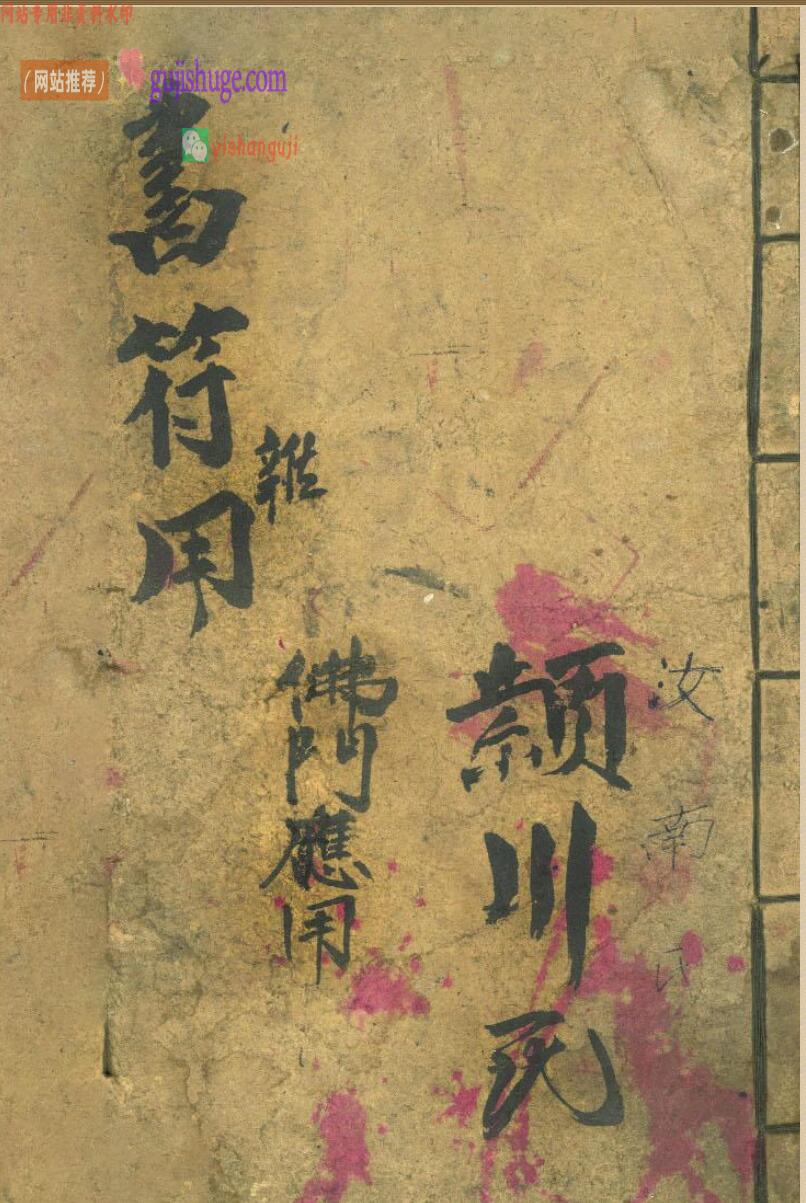 网站专用非资料水印
(网站推荐)
gujishuge.com
yishanguji
汝南氏
颍川氏
佛門應用
雜
書符用